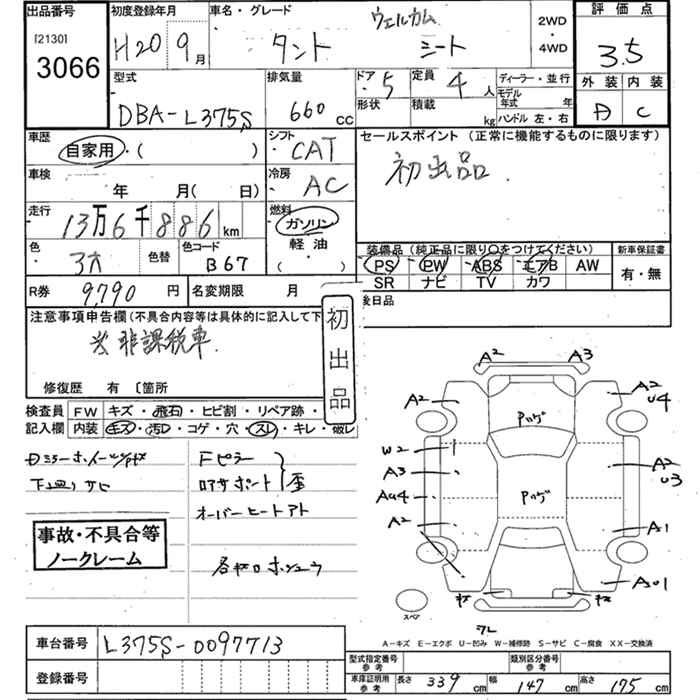 出品番号
[2130]
3066
初度登録年月
H20 9月
車名・グレード
ウェルカム
タント シート
2WD
・
4WD
評価点
3.5
外装 内装
A C
型式
DBA-L375S
排気量
660 cc
ドア・形状 5
定員 4人
積載 kg
ディーラー・並行
モデル年式 年
ハンドル 左・右
車歴
自家用・( )
シフト
CAT
セールスポイント（正常に機能するものに限ります）
初出品
車検 年 月( 日)
冷房
AC
走行
13万6千886km
燃料
ガソリン
軽油
( )
色 色替
色コード
B67
装備品（純正品に限り〇をつけてください）
PS PW ABS エアB AW
SR ナビ TV カワ
新車保証書
有・無
R券 9,790円
名変期限 月
後日品
注意事項申告欄（不具合内容等は具体的に記入して下
※非課税車
修復歴 有〔箇所
初出品
検査員 FW キズ・飛石・ヒビ割・リペア跡・
記入欄 内装 キズ・汚レ・コゲ・穴・スレ・キレ・破レ
下廻りサビ
Fピラー
ロアサポート 歪
オーバーヒートアト
事故・不具合等
ノークレーム
A2 A3
A2 A2
U4
W2
A3 A2
U3
A2 A1
スペア
A－キズ E－エクボ U－凹み W－補修跡 S－サビ C－腐食 XX－交換済
車台番号 L375S-0097713
登録番号
型式指定番号 参考
類別区分番号 参考
車庫証明用 参考 長さ 339cm 幅 147cm 高さ 175cm